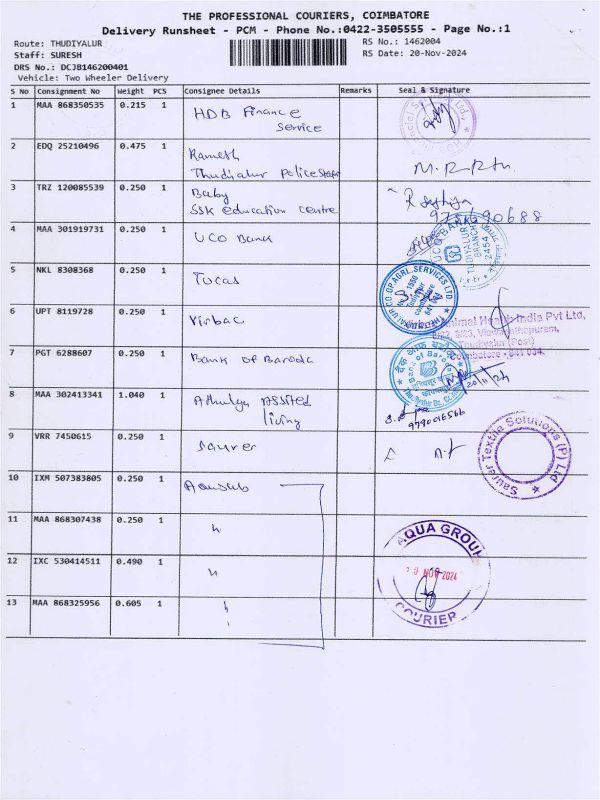 THE PROFESSIONAL COURIERS, COIMBATORE
Delivery Runsheet - PCM - Phone No.:0422-3505555 - Page No.:1
Route: THUDIYALUR
RS No.: 1462004
Staff: SURESH
RS Date: 20-Nov-2024
DRS No.: DCJB146200401
Vehicle: Two Wheeler Delivery
S No Consignment No Weight PCS Consignee Details Remarks Seal & Signature
1 MAA 868350535 0.215 1 HDB Finance
Service
2 EDQ 25210496 0.475 1 Ramesh
Thudialur Police
3 TRZ 120085539 0.250 1 Baby
SSK education centre
4 MAA 301919731 0.250 1 UCO Bank
UCO BANK
TUDIYALUR
BRANCH
2454
5 NKL 8308368 0.250 1 Tucas
CO.OP.AGRL.SERVICES LTD.
6 UPT 8119728 0.250 1 Virbac
Animal Health India Pvt Ltd,
Coimbatore - 641 034.
7 PGT 6288607 0.250 1 Bank of Baroda
Bank of Baroda
20/11/24
8 MAA 302413341 1.040 1 Athulya Assited
living
9 VRR 7450615 0.250 1 Saurer
Saurer Textile Solutions (P) Ltd
10 IXM 507383805 0.250 1
11 MAA 868307438 0.250 1 "
AQUA GROUP
12 IXC 530414511 0.490 1 "
NOV 2024
13 MAA 868325956 0.605 1
COURIER